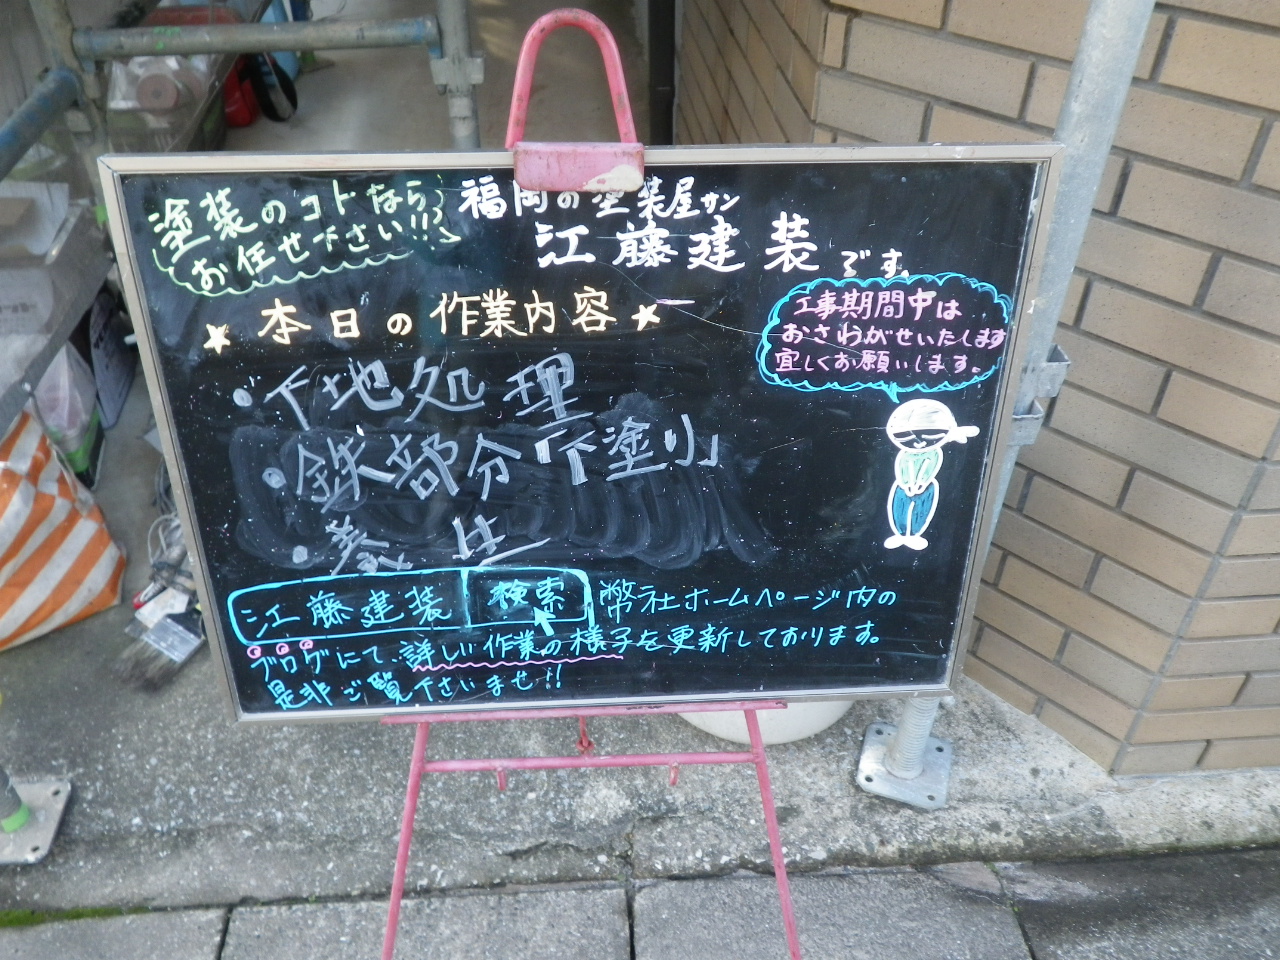 塗装のコトなら
お任せ下さい!!
福岡の塗装屋サン
江藤建装です。
★本日の作業内容★
工事期間中は
おさわがせいたします
宜しくお願いします。
・下地処理
・鉄部分「下塗り」
・養生
江藤建装 検索 幣社ホームページ内の
ブログにて詳しい作業の様子を更新しております。
是非ご覧下さいませ!!